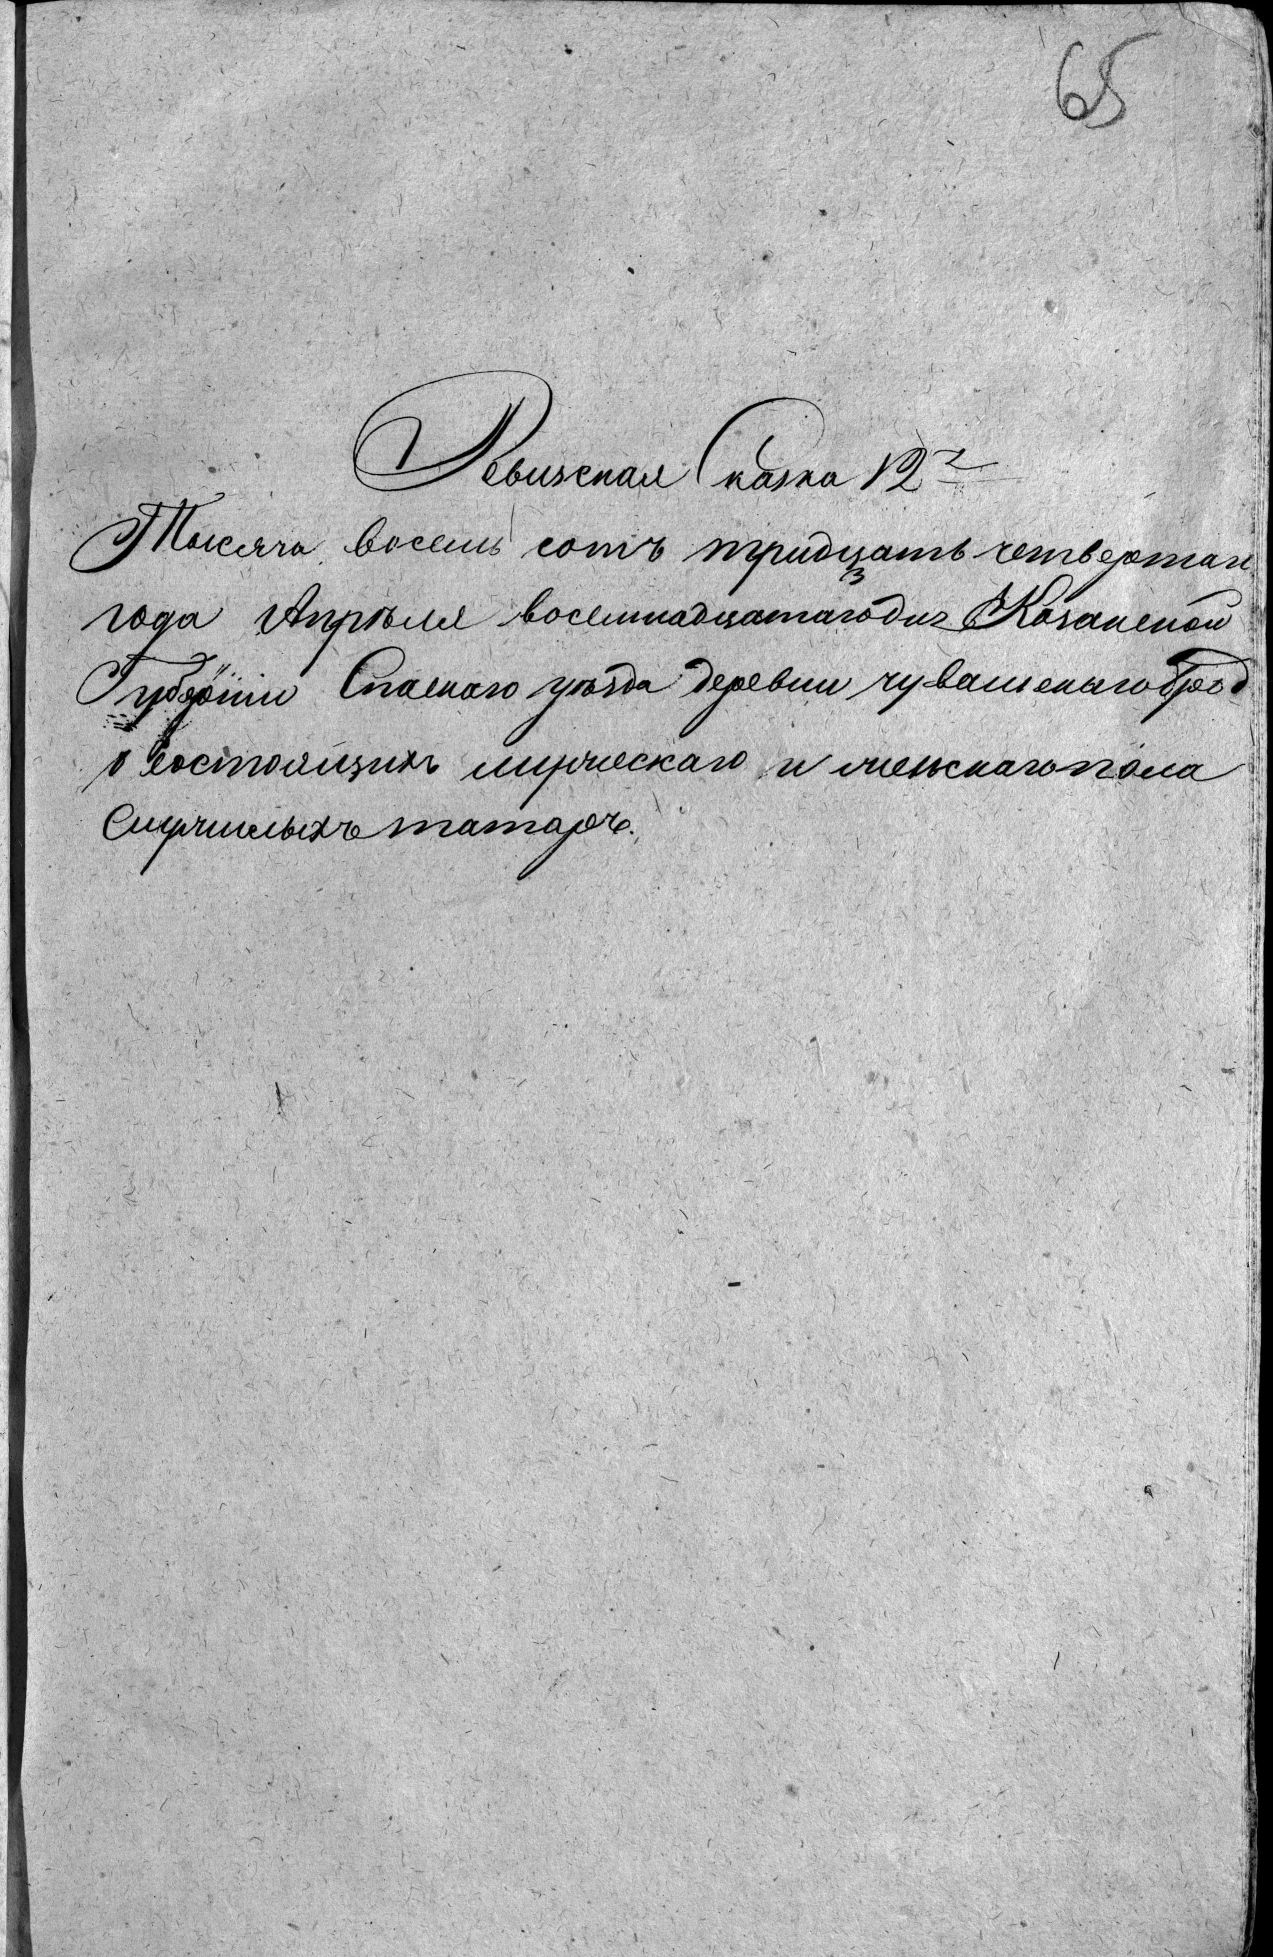 65
Ревизская Сказка 12я
Тысяча восемь сотъ тридцать четвертаго
года Апреля восемнадцатаго дня Казанской
Губернiи Спаскаго уѣзда деревни чувашскаго брод
о состоящихъ мужескаго и женскаго пола
Служилыхъ татаръ.